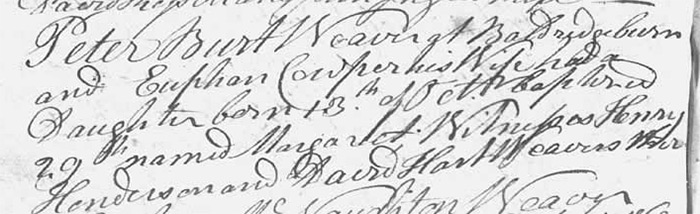 Peter Burt Weaver at Baldridgeburn
and Euphan Cowper his Wife had a
Daughter born 13.th of Octr. baptized
29th named Margaret. Witnesses Henry
Henderson and David Hart Weavers
Naughton Weaver